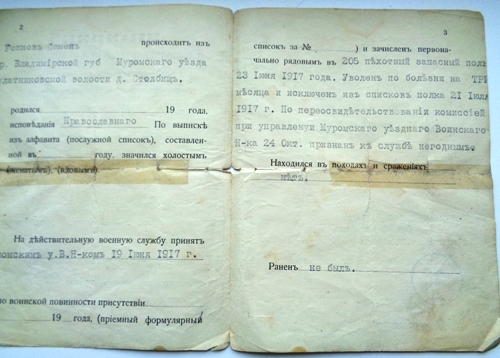 2
происходитъ изъ
кр. Владимірской губ Муромскаго уѣзда
волости д. Столбищъ.
родился 19 года,
исповѣданія Православнаго По выпискѣ
изъ алфавита (послужной списокъ), составлен-
ной въ году, значился холостымъ
(женатымъ), (вдовымъ)
На дѣйствительную военную службу принятъ
у.В.Н-комъ 19 Іюня 1917 г.
по воинской повинности присутствіи
19 года, (пріемный формулярный
3
списокъ за № ) и зачисленъ первона-
чально рядовымъ въ 205 пѣхотный запасный полкъ
23 Іюня 1917 года. Уволенъ по болѣзни на ТРИ
мѣсяца и исключенъ изъ списковъ полка 21 Іюля
1917 г. По переосвидѣтельствованіи комиссіей
при управленіи Муромскаго уѣзднаго Воинскаго
Н-ка 24 Окт. признанъ къ службѣ негоднымъ.
Находился въ походахъ и сраженіяхъ
Раненъ не былъ.